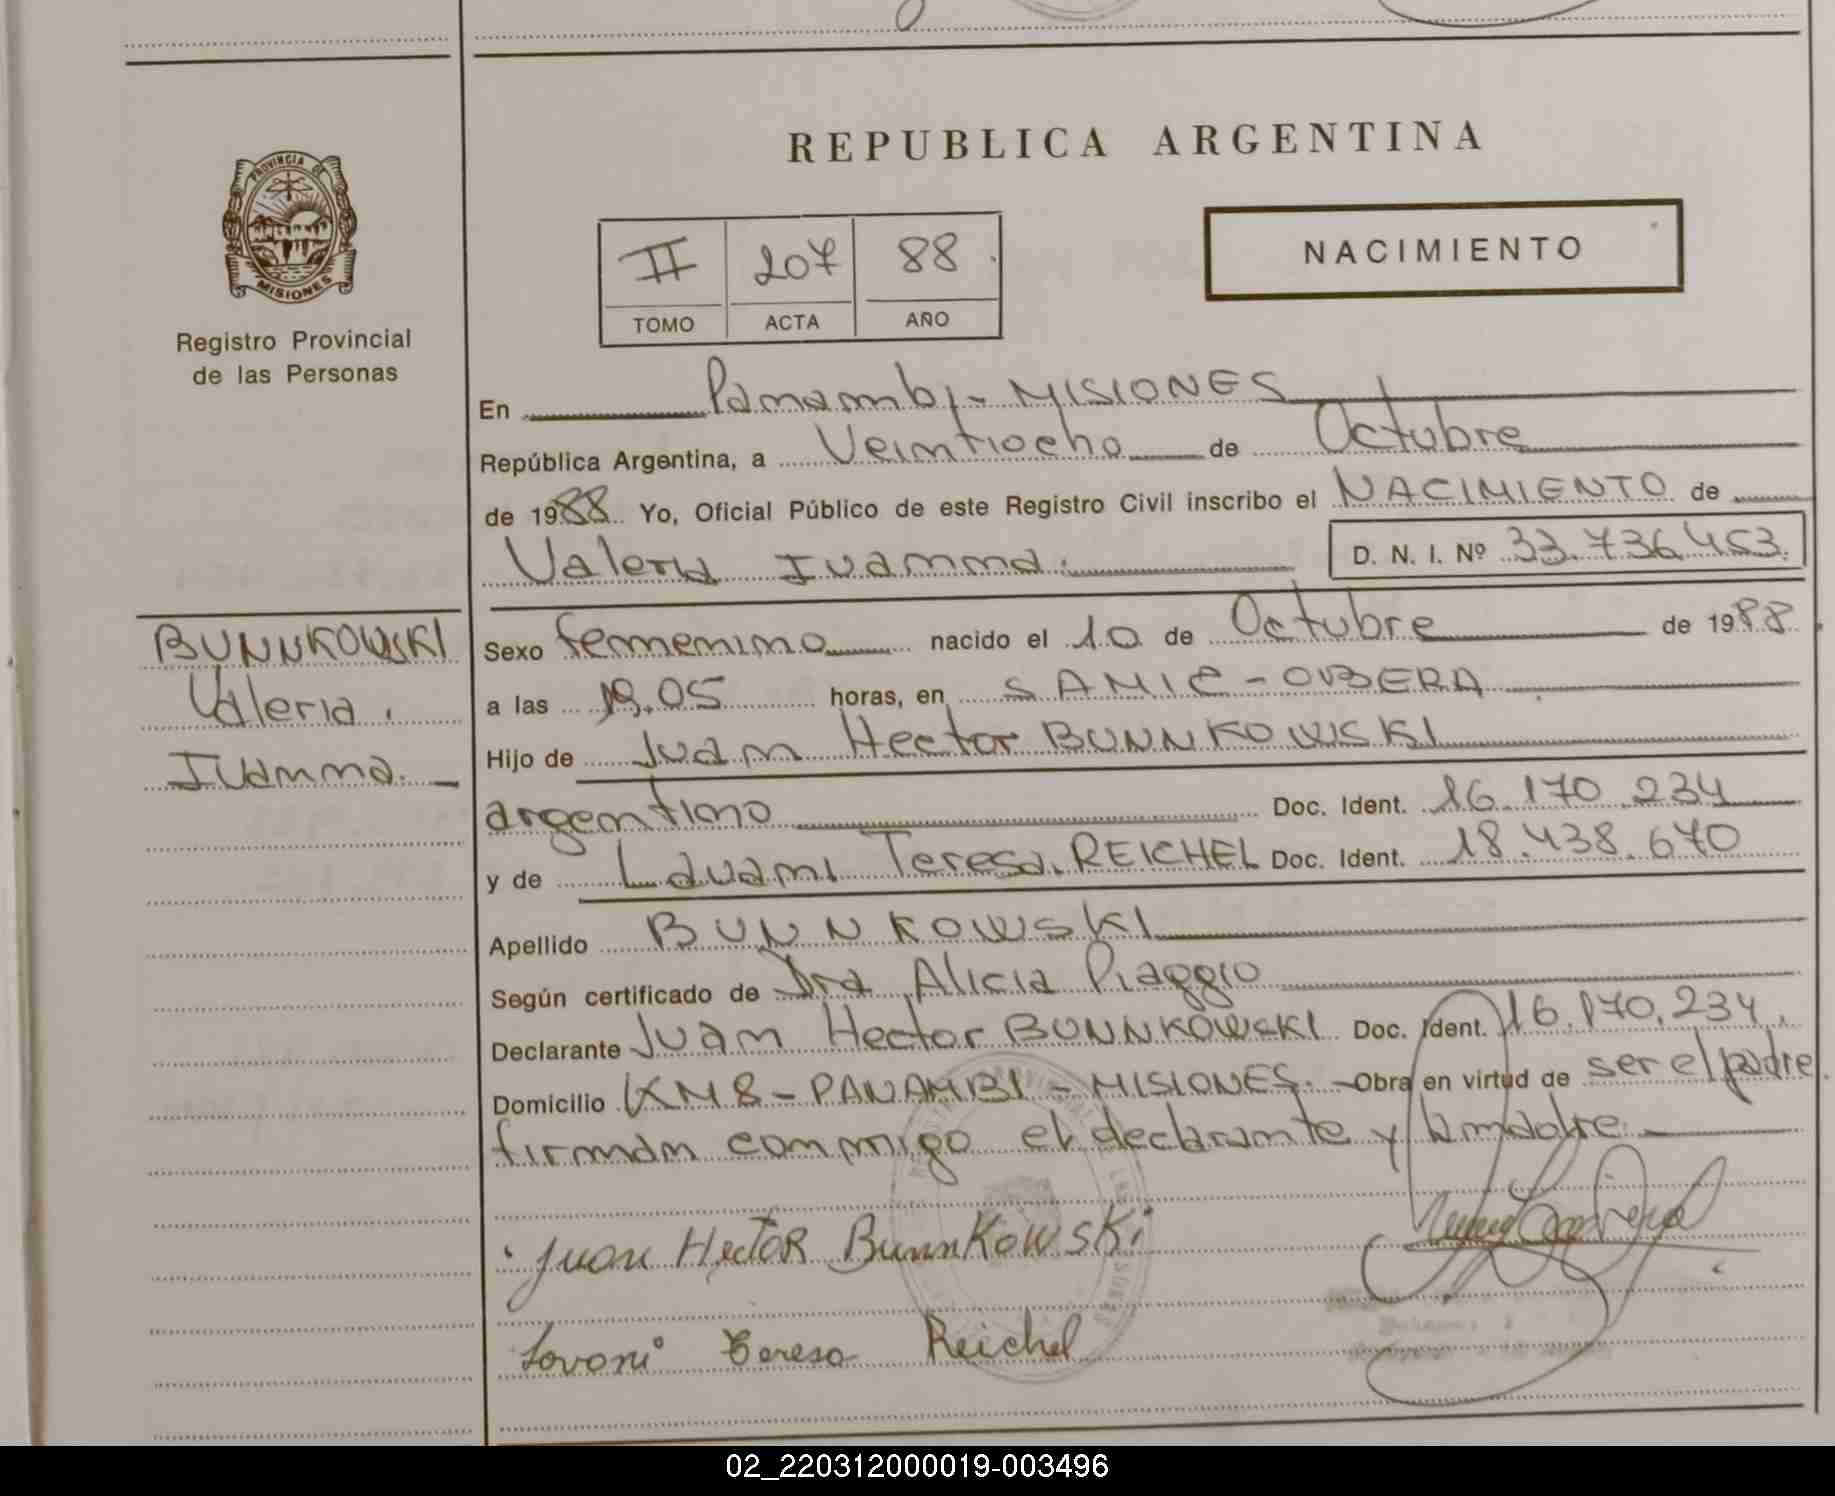 REPUBLICA ARGENTINA
PROVINCIA DE
MISIONES
Registro Provincial
de las Personas
II 207 88
TOMO ACTA AÑO
NACIMIENTO
En Panambi - MISIONES
República Argentina, a Veintiocho de Octubre
de 1988 Yo, Oficial Público de este Registro Civil inscribo el NACIMIENTO de
Valeria Ivanna. D. N. I. Nº 33.736.453.
BUNNKOWSKI
Valeria.
Ivanna.
Sexo femenino nacido el 10 de Octubre de 1988
a las 19.05 horas, en SAMIC - OBERA
Hijo de Juan Hector BUNNKOWSKI
argentino Doc. Ident. 16.170.234
y de Lavani Teresa. REICHEL Doc. Ident. 18.438.670
Apellido BUNNKOWSKI
Según certificado de Dra Alicia Piaggio
Declarante Juan Hector BUNNKOWSKI Doc. Ident. 16.170.234.
Domicilio KM 8 - PANAMBI - MISIONES. - Obra en virtud de ser el padre.
firman conmigo el declarante y la madre.
Juan Hector BunnKowski
Lovani Teresa Reichel
02_220312000019-003496